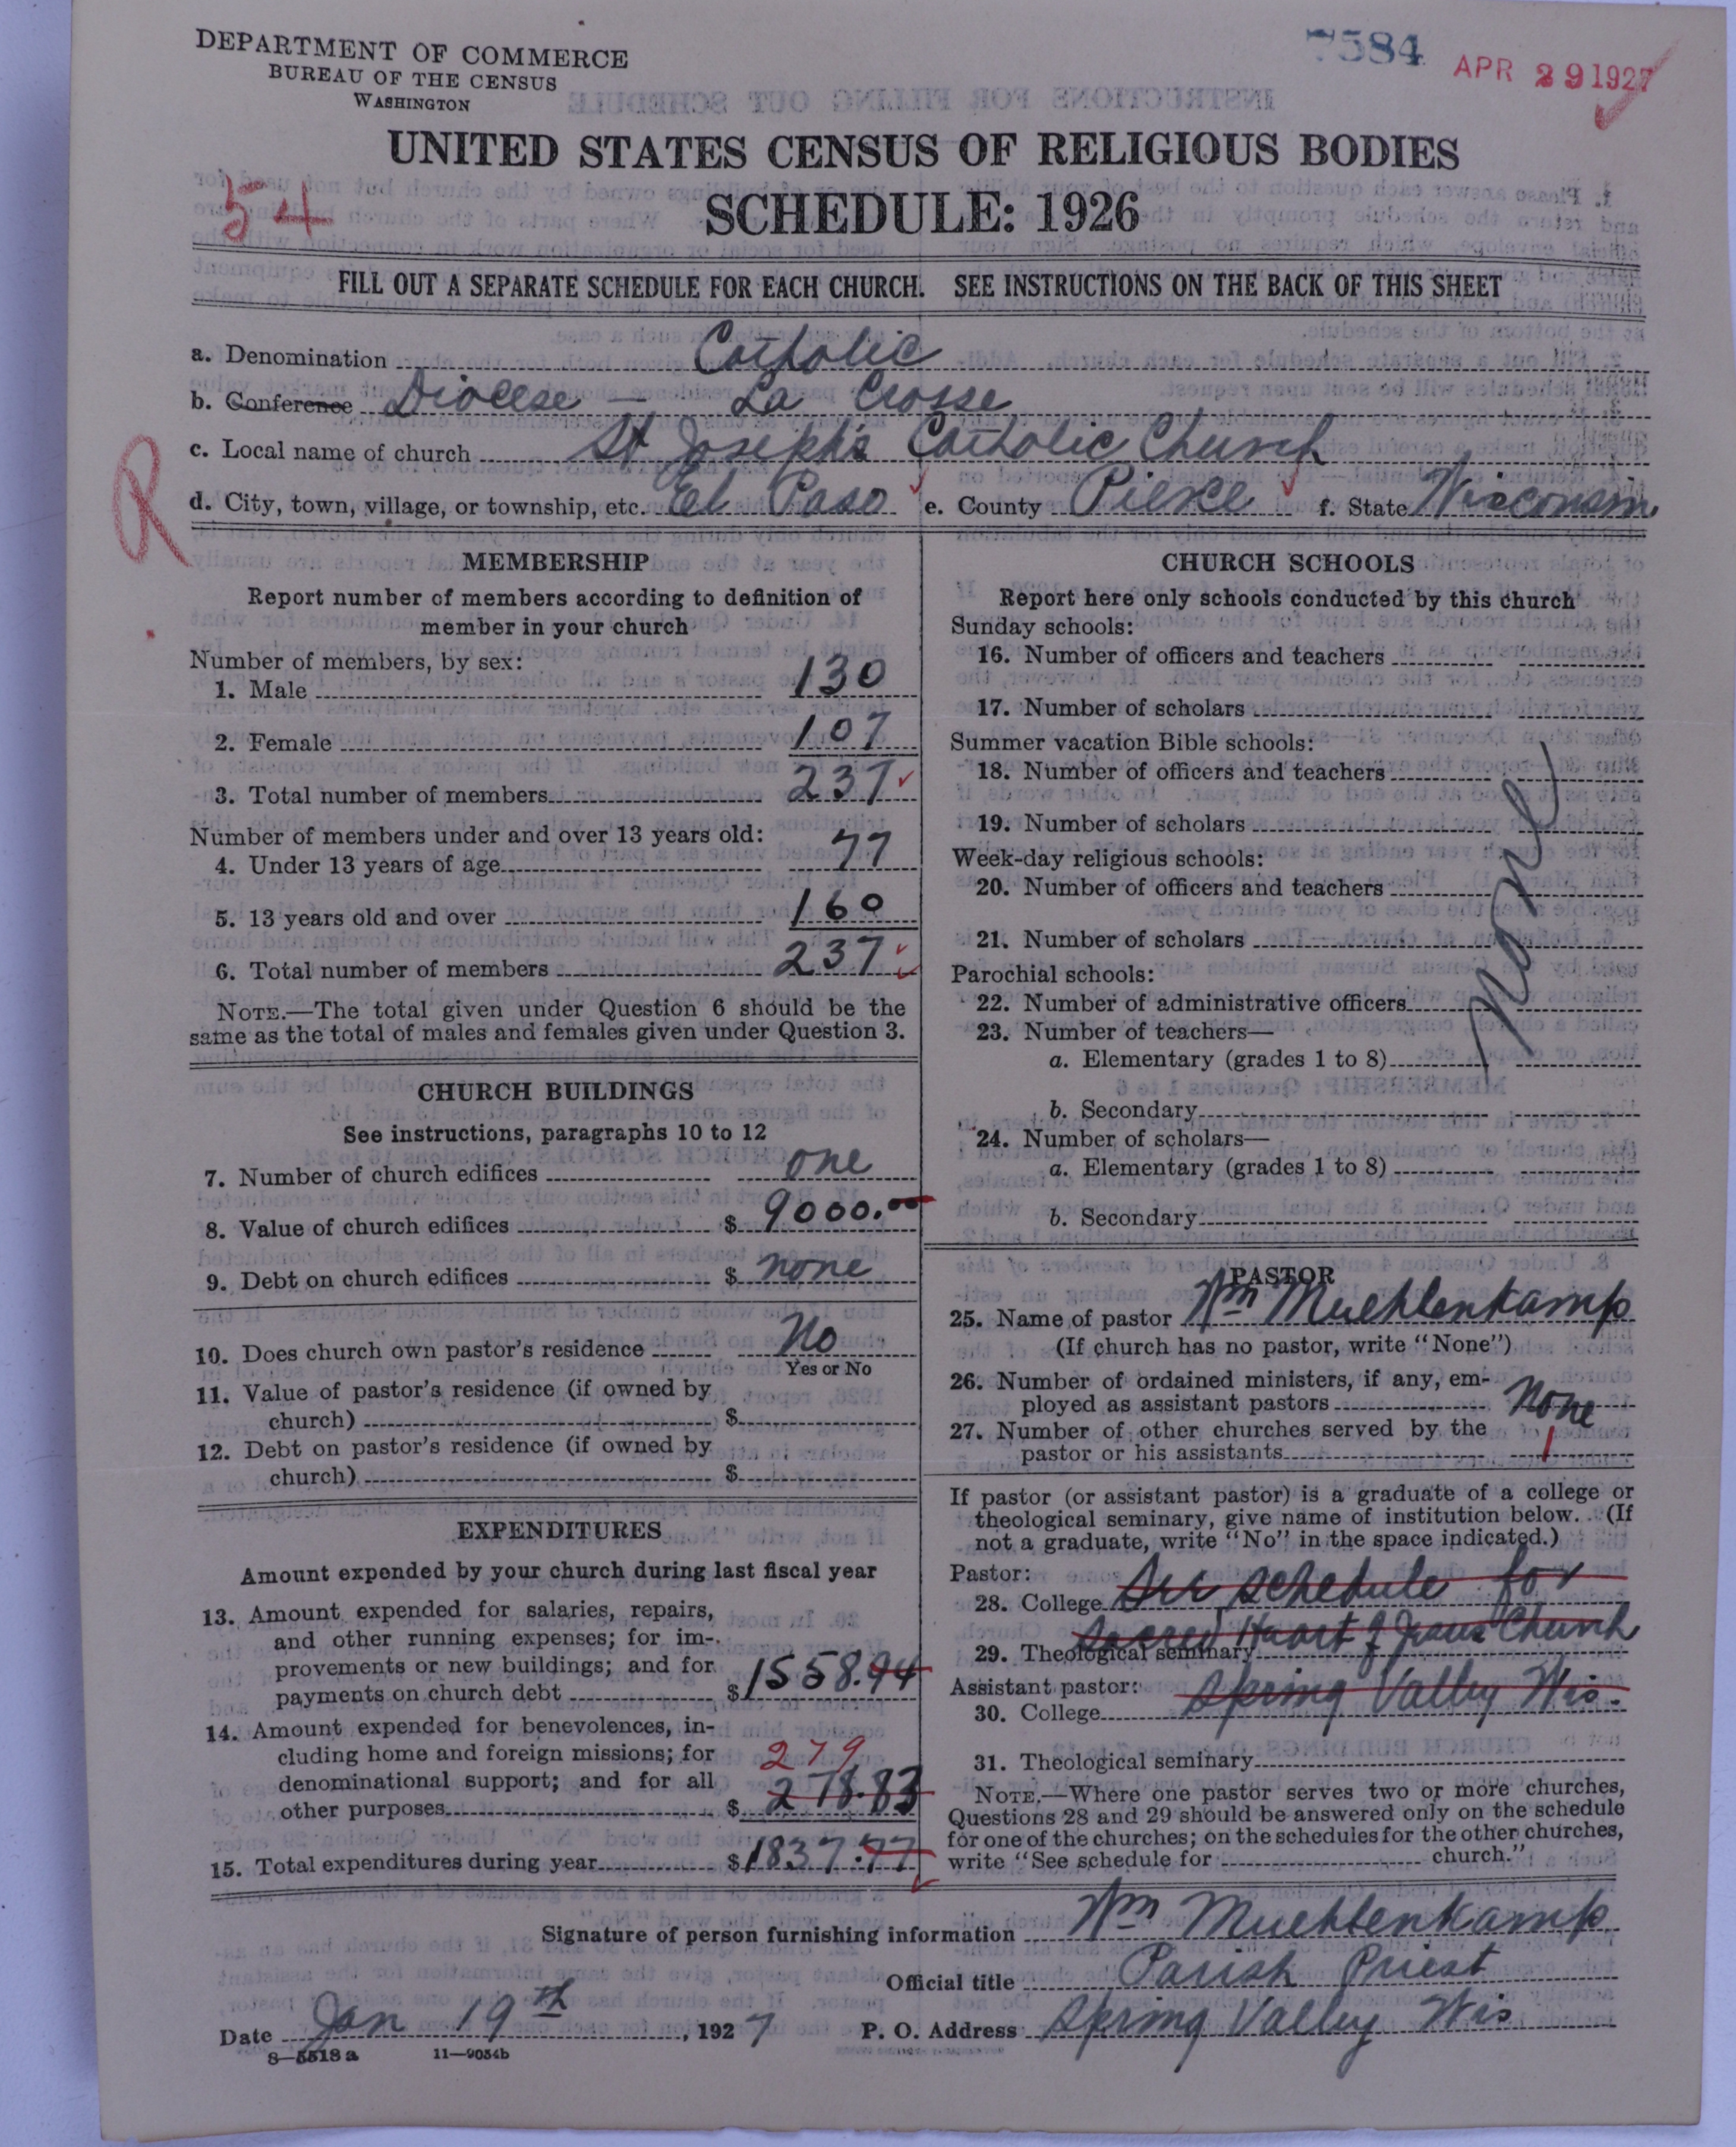 DEPARTMENT OF COMMERCE
BUREAU OF THE CENSUS
WASHINGTON
7584
APR 29 1927
UNITED STATES CENSUS OF RELIGIOUS BODIES
54
SCHEDULE: 1926
FILL OUT A SEPARATE SCHEDULE FOR EACH CHURCH. SEE INSTRUCTIONS ON THE BACK OF THIS SHEET
a. Denomination Catholic
b. Conference Diocese — La Crosse
c. Local name of church St Joseph's Catholic Church
R
d. City, town, village, or township, etc. El Paso e. County Pierce f. State Wisconsin
MEMBERSHIP
Report number of members according to definition of
member in your church
Number of members, by sex:
1. Male 130
2. Female 107
3. Total number of members 237
Number of members under and over 13 years old:
4. Under 13 years of age 77
5. 13 years old and over 160
6. Total number of members 237
NOTE.—The total given under Question 6 should be the
same as the total of males and females given under Question 3.
CHURCH BUILDINGS
See instructions, paragraphs 10 to 12
7. Number of church edifices one
8. Value of church edifices $ 9000.00
9. Debt on church edifices $ none
10. Does church own pastor's residence No
Yes or No
11. Value of pastor's residence (if owned by
church) $
12. Debt on pastor's residence (if owned by
church) $
EXPENDITURES
Amount expended by your church during last fiscal year
13. Amount expended for salaries, repairs,
and other running expenses; for im-
provements or new buildings; and for
payments on church debt $ 1558.94
14. Amount expended for benevolences, in-
cluding home and foreign missions; for 279
denominational support; and for all
other purposes $ 278.83
15. Total expenditures during year $ 1837.77
CHURCH SCHOOLS
Report here only schools conducted by this church
Sunday schools:
16. Number of officers and teachers
17. Number of scholars
Summer vacation Bible schools:
18. Number of officers and teachers
19. Number of scholars
Week-day religious schools:
20. Number of officers and teachers
21. Number of scholars
None
Parochial schools:
22. Number of administrative officers
23. Number of teachers—
a. Elementary (grades 1 to 8)
b. Secondary
24. Number of scholars—
a. Elementary (grades 1 to 8)
b. Secondary
PASTOR
25. Name of pastor Wm Muehlenkamp
(If church has no pastor, write "None")
26. Number of ordained ministers, if any, em-
ployed as assistant pastors None
27. Number of other churches served by the
pastor or his assistants 1
If pastor (or assistant pastor) is a graduate of a college or
theological seminary, give name of institution below. (If
not a graduate, write "No" in the space indicated.)
Pastor:
28. College See schedule for
29. Theological seminary Sacred Heart of Jesus Church
Assistant pastor:
30. College Spring Valley Wis.
31. Theological seminary
NOTE.—Where one pastor serves two or more churches,
Questions 28 and 29 should be answered only on the schedule
for one of the churches; on the schedules for the other churches,
write "See schedule for church."
Signature of person furnishing information Wm Muehlenkamp
Official title Parish Priest
Date Jan 19th, 1927 P. O. Address Spring Valley Wis
8—5518a 11—9054b